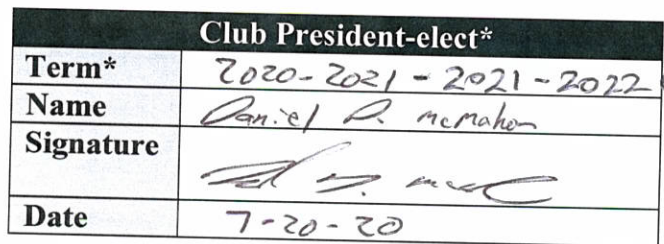 Club President-elect*
Term* 2020-2021-2021-2022
Name Daniel D. McMahon
Signature
Date 7-20-20